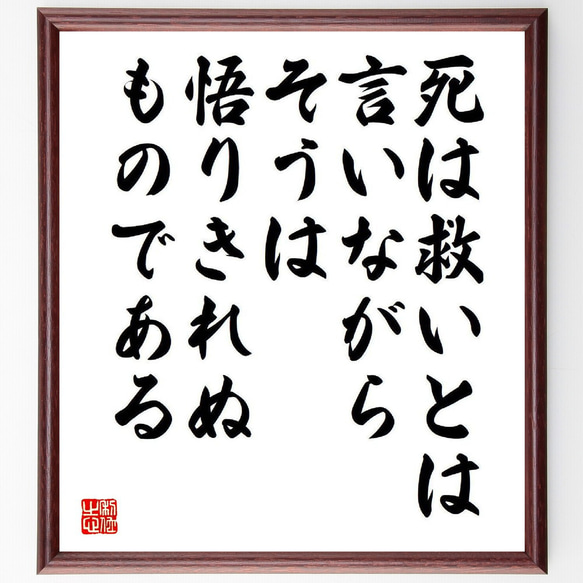 死は救いとは
言いながら
そうは
悟りきれぬ
ものである